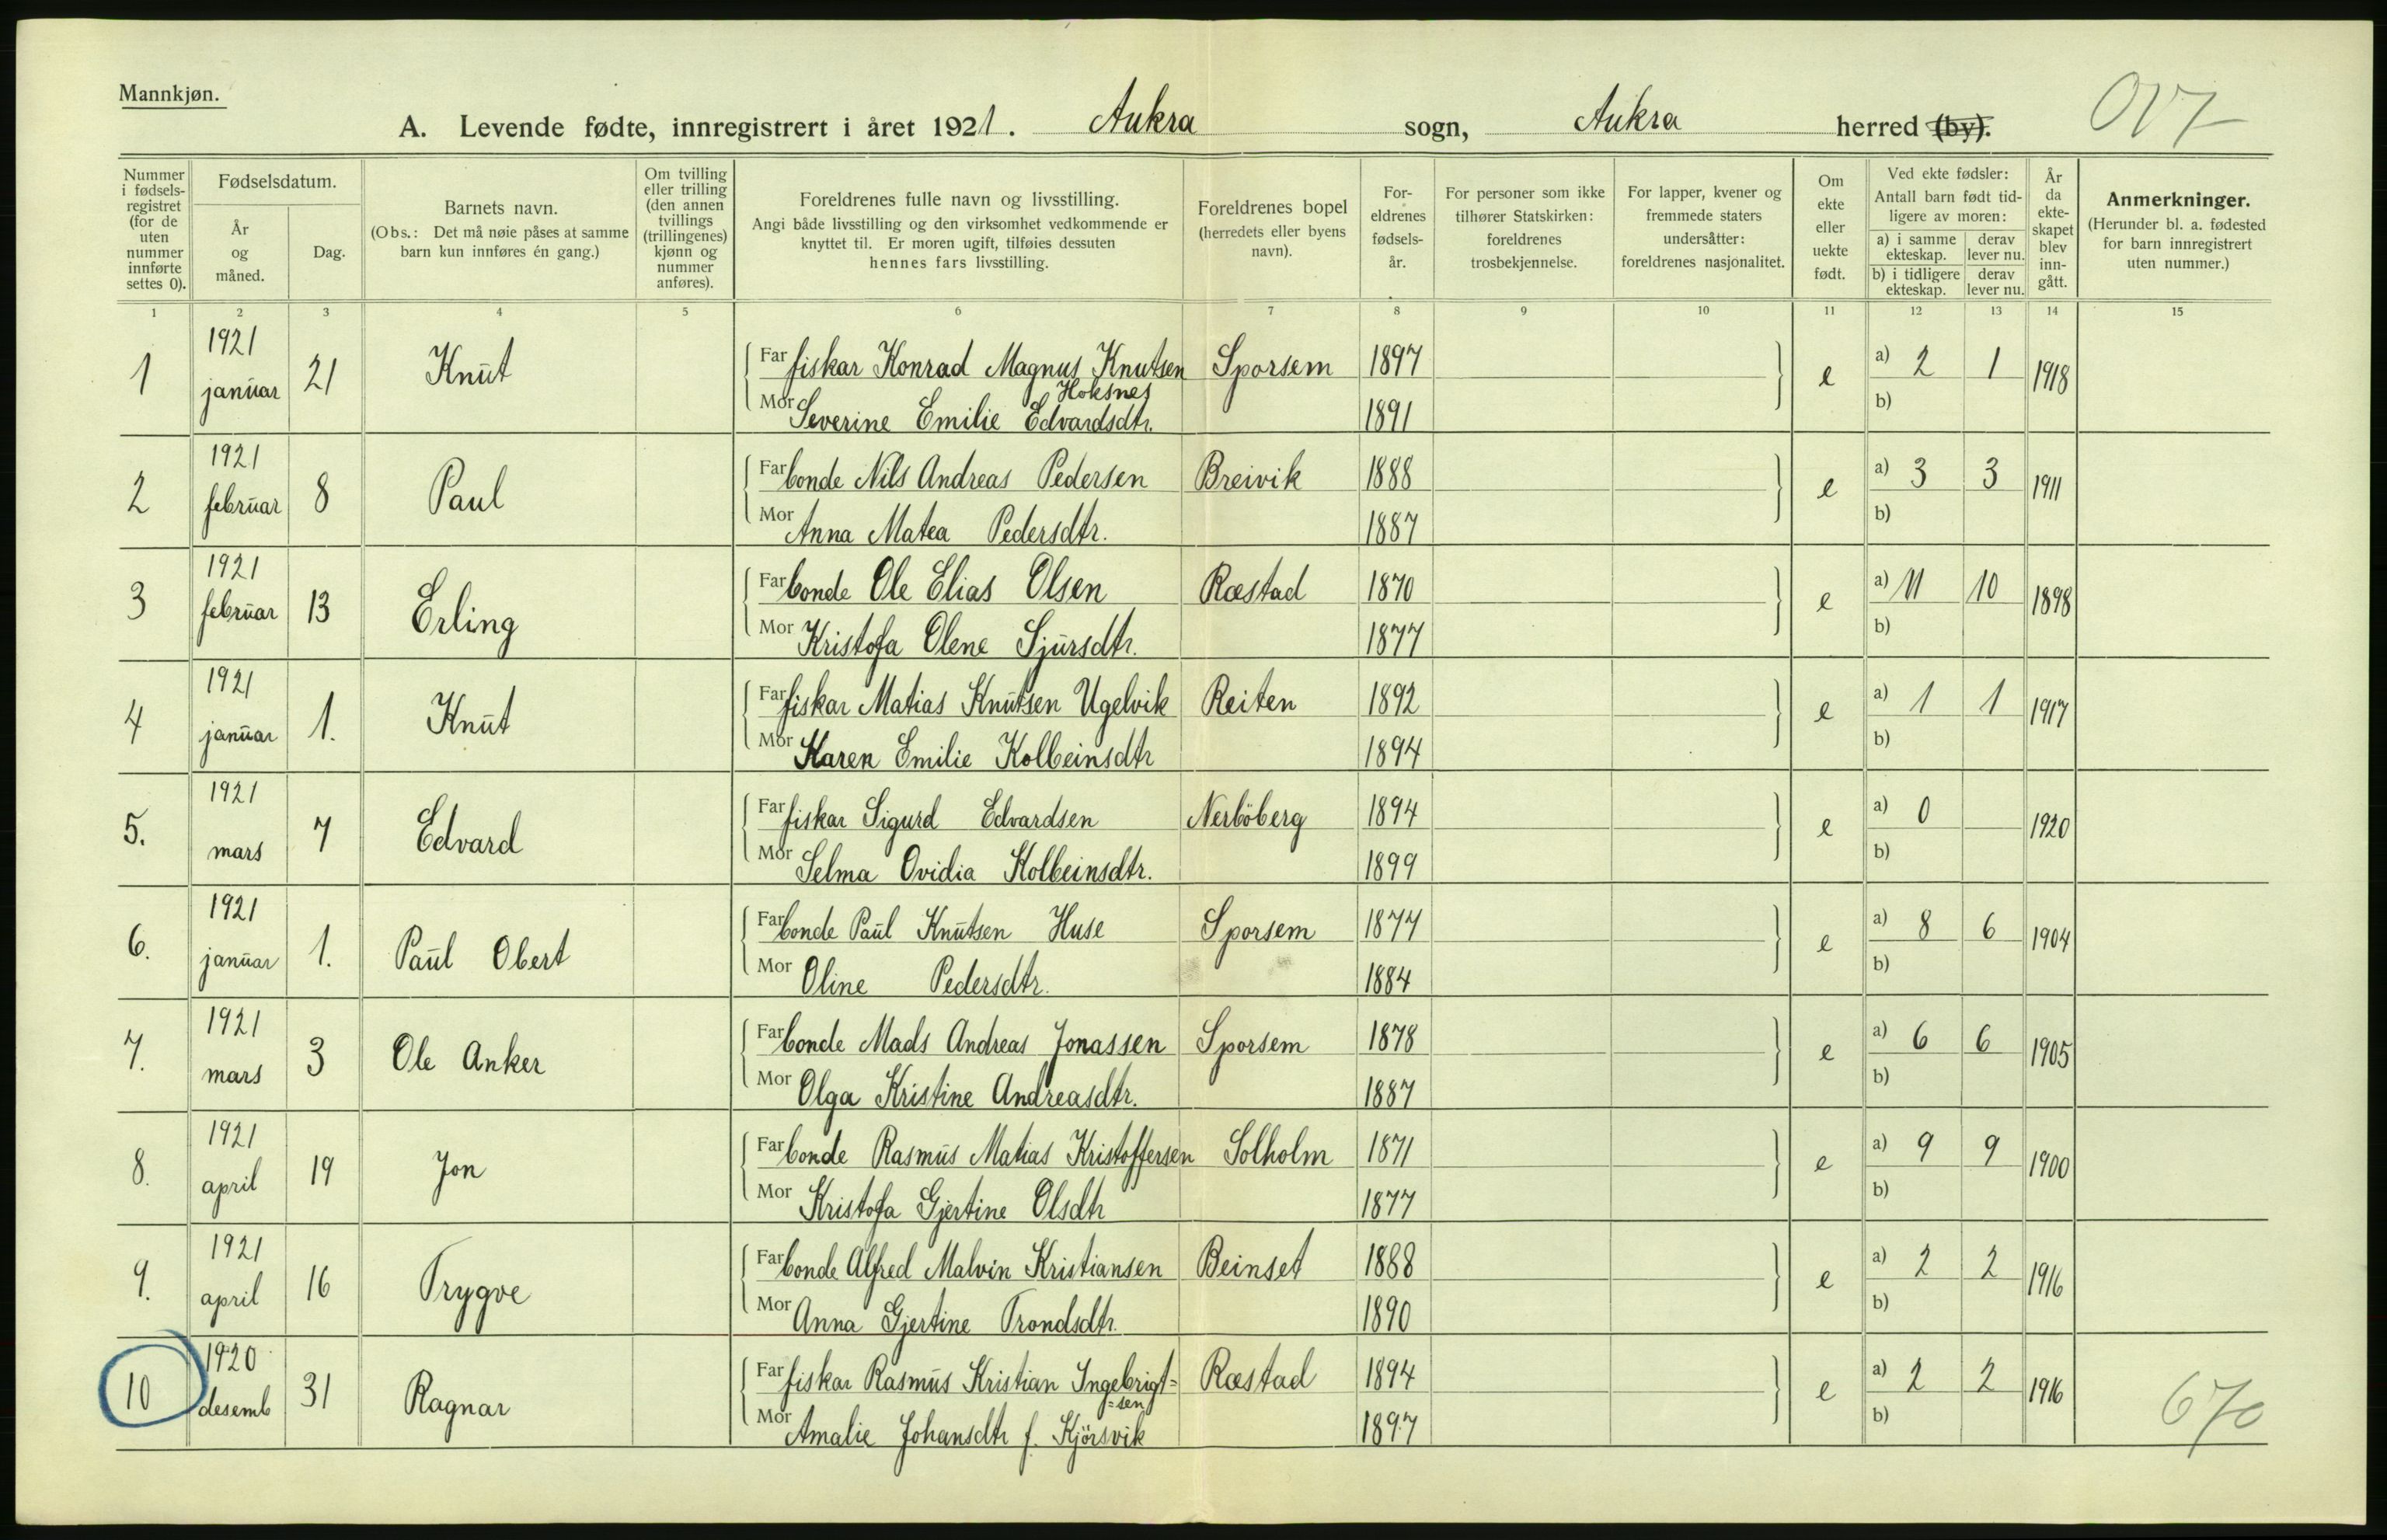 Mannkjøn.
A. Levende fødte, innregistrert i året 1921. Aukra sogn, Aukra herred (by).
Nummer i fødsels-registret (for de uten nummer innførte settes 0).
Fødselsdatum.
År og måned.
Dag.
Barnets navn.
(Obs.: Det må nøie påses at samme barn kun innføres én gang.)
Om tvilling eller trilling (den annen tvillings (trillingenes) kjønn og nummer anføres).
Foreldrenes fulle navn og livsstilling.
Angi både livsstilling og den virksomhet vedkommende er knyttet til. Er moren ugift, tilføies dessuten hennes fars livsstilling.
Foreldrenes bopel (herredets eller byens navn).
For-eldrenes fødsels-år.
For personer som ikke tilhører Statskirken: foreldrenes trosbekjennelse.
For lapper, kvener og fremmede staters undersåtter: foreldrenes nasjonalitet.
Om ekte eller uekte født.
Ved ekte fødsler:
Antall barn født tid-ligere av moren:
a) i samme ekteskap. derav lever nu.
b) i tidligere ekteskap. derav lever nu.
År da ekte-skapet blev inn-gått.
Anmerkninger.
(Herunder bl. a. fødested for barn innregistrert uten nummer.)
1 2 3 4 5 6 7 8 9 10 11 12 13 14 15
1 1921 januar 21 Knut Far fiskar Konrad Magnus Knutsen Sporsem 1897 e a) 2 1 1918
Hoksnes
Mor Severine Emilie Edvardsdtr. 1891 b)
2 1921 februar 8 Paul Far bonde Nils Andreas Pedersen Breivik 1888 e a) 3 3 1911
Mor Anna Matea Pedersdtr. 1887 b)
3 1921 februar 13 Erling Far bonde Ole Elias Olsen Ræstad 1870 e a) 11 10 1898
Mor Kristofa Olene Sjursdtr. 1877 b)
4 1921 januar 1. Knut Far fiskar Matias Knutsen Ugelvik Reiten 1892 e a) 1 1 1917
Mor Karen Emilie Kolbeinsdtr 1894 b)
5. 1921 mars 7 Edvard Far fiskar Sigurd Edvardsen Nerböberg 1894 e a) 0 1920
Mor Selma Ovidia Kolbeinsdtr. 1899 b)
6. 1921 januar 1. Paul Obert Far bonde Paul Knutsen Huse Sporsem 1874 e a) 8 6 1904
Mor Oline Pedersdtr. 1884 b)
7. 1921 mars 3 Ole Anker Far bonde Mads Andreas Jonassen Sporsem 1878 e a) 6 6 1905
Mor Olga Kristine Andreasdtr. 1887 b)
8. 1921 april 19 Jon Far bonde Rasmus Matias Kristoffersen Solholm 1871 e a) 9 9 1900
Mor Kristofa Gjertine Olsdtr 1877 b)
9. 1921 april 16 Trygve Far bonde Alfred Malvin Kristiansen Beinset 1888 e a) 2 2 1916
Mor Anna Gjertine Trondsdtr. 1890 b)
10 1920 desemb 31 Ragnar Far fiskar Rasmus Kristian Ingebrigt= Ræstad 1894 e a) 2 2 1916
=sen
Mor Amalie Johansdtr f. Kjörsvik 1897 b)
670